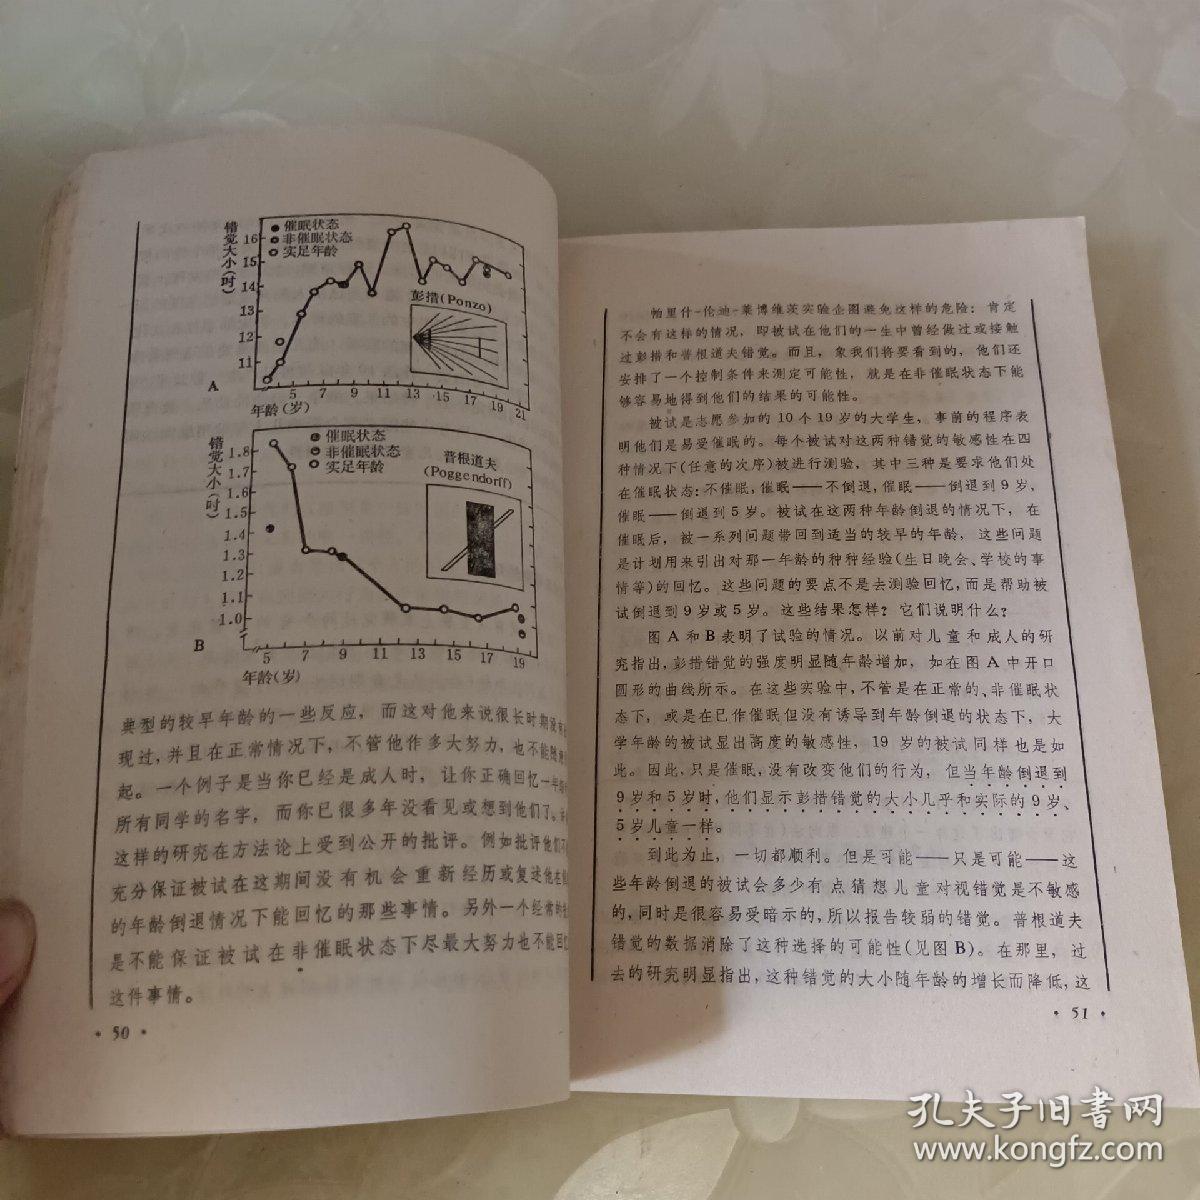 错觉大小(吋)
16
15
14
13
12
11
● 催眠状态
非催眠状态
实足年龄
彭措(Ponzo)
A
5 7 9 11 13 15 17 19 21
年龄(岁)
错觉大小(吋)
1.8
1.7
1.6
1.5
1.4
1.3
1.2
1.1
1.0
催眠状态
非催眠状态
实足年龄
普根道夫
(Poggendorff)
B
5 7 9 11 13 15 17 19
年龄(岁)
典型的较早年龄的一些反应，而这对他来说很长时期没有
现过，并且在正常情况下，不管他作多大努力，也不能随
起。一个例子是当你已经是成人时，让你正确回忆一年
所有同学的名字，而你已很多年没看见或想到他们了。
这样的研究在方法论上受到公开的批评。例如批评他们不
充分保证被试在这期间没有机会重新经历或复述他在
的年龄倒退情况下能回忆的那些事情。另外一个经常的
是不能保证被试在非催眠状态下尽最大努力也不能回忆
这件事情。
· 50 ·
帕里什-伦迪-莱博维茨实验企图避免这样的危险：肯定
不会有这样的情况，即被试在他们的一生中曾经做过或接触
过彭措和普根道夫错觉。而且，象我们将要看到的，他们还
安排了一个控制条件来测定可能性，就是在非催眠状态下能
够容易地得到他们的结果的可能性。
被试是志愿参加的 10 个 19 岁的大学生，事前的程序表
明他们是易受催眠的。每个被试对这两种错觉的敏感性在四
种情况下(任意的次序)被进行测验，其中三种是要求他们处
在催眠状态：不催眠，催眠——不倒退，催眠——倒退到 9 岁，
催眠——倒退到 5 岁。被试在这两种年龄倒退的情况下，在
催眠后，被一系列问题带回到适当的较早的年龄，这些问题
是计划用来引出对那一年龄的种种经验(生日晚会、学校的事
情等)的回忆。这些问题的要点不是去测验回忆，而是帮助被
试倒退到 9 岁或 5 岁。这些结果怎样？它们说明什么？
图 A 和 B 表明了试验的情况。以前对儿童和成人的研
究指出，彭措错觉的强度明显随年龄增加，如在图 A 中开口
圆形的曲线所示。在这些实验中，不管是在正常的、非催眠状
态下，或是在已作催眠但没有诱导到年龄倒退的状态下，大
学年龄的被试显出高度的敏感性，19 岁的被试同样也是如
此。因此，只是催眠，没有改变他们的行为，但当年龄倒退到
9 岁和 5 岁时，他们显示彭措错觉的大小几乎和实际的 9 岁、
5 岁儿童一样。
到此为止，一切都顺利。但是可能——只是可能——这
些年龄倒退的被试会多少有点猜想儿童对视错觉是不敏感
的，同时是很容易受暗示的，所以报告较弱的错觉。普根道夫
错觉的数据消除了这种选择的可能性(见图 B)。在那里，过
去的研究明显指出，这种错觉的大小随年龄的增长而降低，这
· 51 ·
孔夫子旧书网
www.kongfz.com